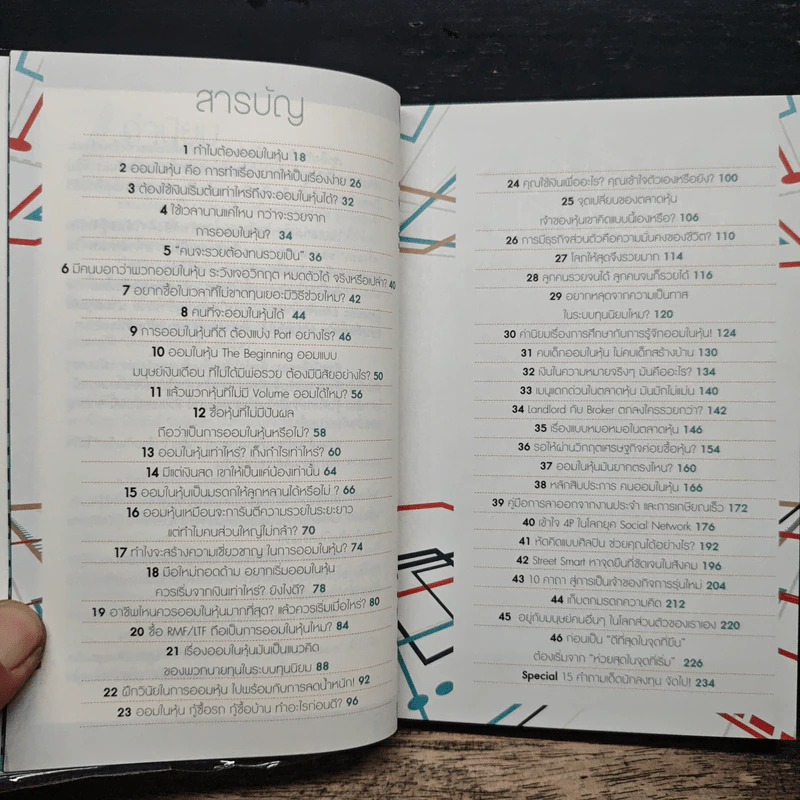 สารบัญ
1 ทำไมต้องออมในหุ้น 18
2 ออมในหุ้น คือ การทำเรื่องยากให้เป็นเรื่องง่าย 26
3 ต้องใช้เงินเริ่มต้นเท่าไหร่ถึงจะออมในหุ้นได้? 32
4 ใช้เวลานานแค่ไหน กว่าจะรวยจาก
การออมในหุ้น? 34
5 "คนจะรวยต้องทนรวยเป็น" 36
6 มีคนบอกว่าพวกออมในหุ้น ระวังเจอวิกฤต หมดตัวได้ จริงหรือเปล่า? 40
7 อยากซื้อในเวลาที่ไม่ขาดทุนเยอะมีวิธีช่วยไหม? 42
8 คนที่จะออมในหุ้นได้ 44
9 การออมในหุ้นที่ดี ต้องแบ่ง Port อย่างไร? 46
10 ออมในหุ้น The Beginning ออมแบบ
มนุษย์เงินเดือน ที่ไม่ได้มีพ่อรวย ต้องมีนิสัยอย่างไร? 50
11 แล้วพวกหุ้นที่ไม่มี Volume ออมได้ไหม? 56
12 ซื้อหุ้นที่ไม่มีปันผล
ถือว่าเป็นการออมในหุ้นหรือไม่? 58
13 ออมในหุ้นเท่าไหร่? เก็งกำไรเท่าไหร่? 60
14 มีแต่เงินสด เขาให้เป็นแค่น้องเท่านั้น 64
15 ออมในหุ้นเป็นมรดกให้ลูกหลานได้หรือไม่ ? 66
16 ออมในหุ้นเหมือนจะการันตีความรวยในระยะยาว
แต่ทำไมคนส่วนใหญ่ไม่กล้า? 70
17 ทำไงจะสร้างความเชี่ยวชาญ ในการออมในหุ้น? 74
18 มือใหม่ถอดด้าม อยากเริ่มออมในหุ้น
ควรเริ่มจากเงินเท่าไร? ยังไงดี? 78
19 อาชีพไหนควรออมในหุ้นมากที่สุด? แล้วควรเริ่มเมื่อไหร่? 80
20 ซื้อ RMF/LTF ถือเป็นการออมในหุ้นไหม? 84
21 เรื่องออมในหุ้นมันเป็นแนวคิด
ของพวกนายทุนในระบบทุนนิยม 88
22 ฝึกวินัยในการออมหุ้น ไปพร้อมกับการลดน้ำหนัก! 92
23 ออมในหุ้น กู้ซื้อรถ กู้ซื้อบ้าน ทำอะไรก่อนดี? 96
24 คุณใช้เงินเพื่ออะไร? คุณเข้าใจตัวเองหรือยัง? 100
25 จุดเปลี่ยนของตลาดหุ้น
เจ้าของหุ้นเขาคิดแบบนี้เองหรือ? 106
26 การมีธุรกิจส่วนตัวคือความมั่นคงของชีวิต? 110
27 โลภให้สุดจึงรวยมาก 114
28 ลูกคนรวยจนได้ ลูกคนจนก็รวยได้ 116
29 อยากหลุดจากความเป็นทาส
ในระบบทุนนิยมไหม? 120
30 ค่านิยมเรื่องการศึกษากับการรู้จักออมในหุ้น! 124
31 คบเด็กออมในหุ้น ไม่คบเด็กสร้างบ้าน 130
32 เงินในความหมายจริงๆ มันคืออะไร? 134
33 เมนูแดกด่วนในตลาดหุ้น มันมักไม่แม่น 140
34 Landlord กับ Broker ตกลงใครรวยกว่า? 142
35 เรื่องแบบหมอหมอในตลาดหุ้น 146
36 รอให้ผ่านวิกฤตเศรษฐกิจค่อยซื้อหุ้น? 154
37 ออมในหุ้นมันยากตรงไหน? 160
38 หลักสิบประการ คนออมในหุ้น 166
39 คู่มือการลาออกจากงานประจำ และการเกษียณเร็ว 172
40 เข้าใจ 4P ในโลกยุค Social Network 176
41 หัดคิดแบบศิลปิน ช่วยคุณได้อย่างไร? 192
42 Street Smart หาจุดยืนที่ชัดเจนในสังคม 196
43 10 คาถา สู่การเป็นเจ้าของกิจการรุ่นใหม่ 204
44 เก็บตกมรดกความคิด 212
45 อยู่กับมนุษย์คนอื่นๆ ในโลกส่วนตัวของเราเอง 220
46 ก่อนเป็น "ดีที่สุดในจุดที่ยืน"
ต้องเริ่มจาก "ห่วยสุดในจุดที่เริ่ม" 226
Special 15 คำถามเด็ดนักลงทุน จัดไป! 234